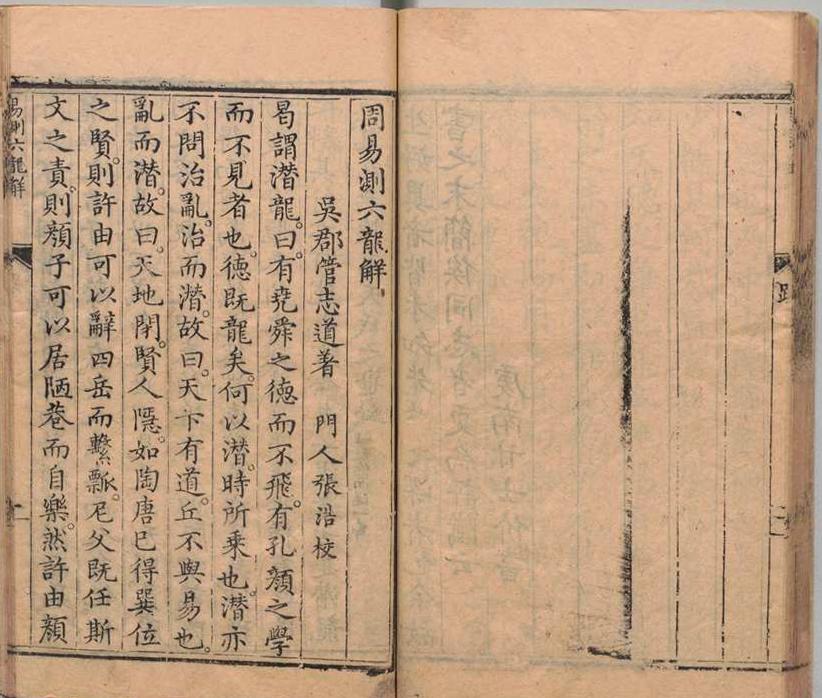 周易測六龍解
吳郡管志道著　門人張浩校
曷謂潛龍。曰。有堯舜之德而不飛。有孔顏之學
而不見者也。德既龍矣。何以潛。時所乘也。潛亦
不問治亂。治而潛。故曰。天下有道。丘不與易也。
亂而潛。故曰。天地閉。賢人隱。如陶唐巳得巽位
之賢。則許由可以辭四岳而繫瓢。尼父既任斯
文之責。則顏子可以居陋巷而自樂。然許由顏
易測六龍解